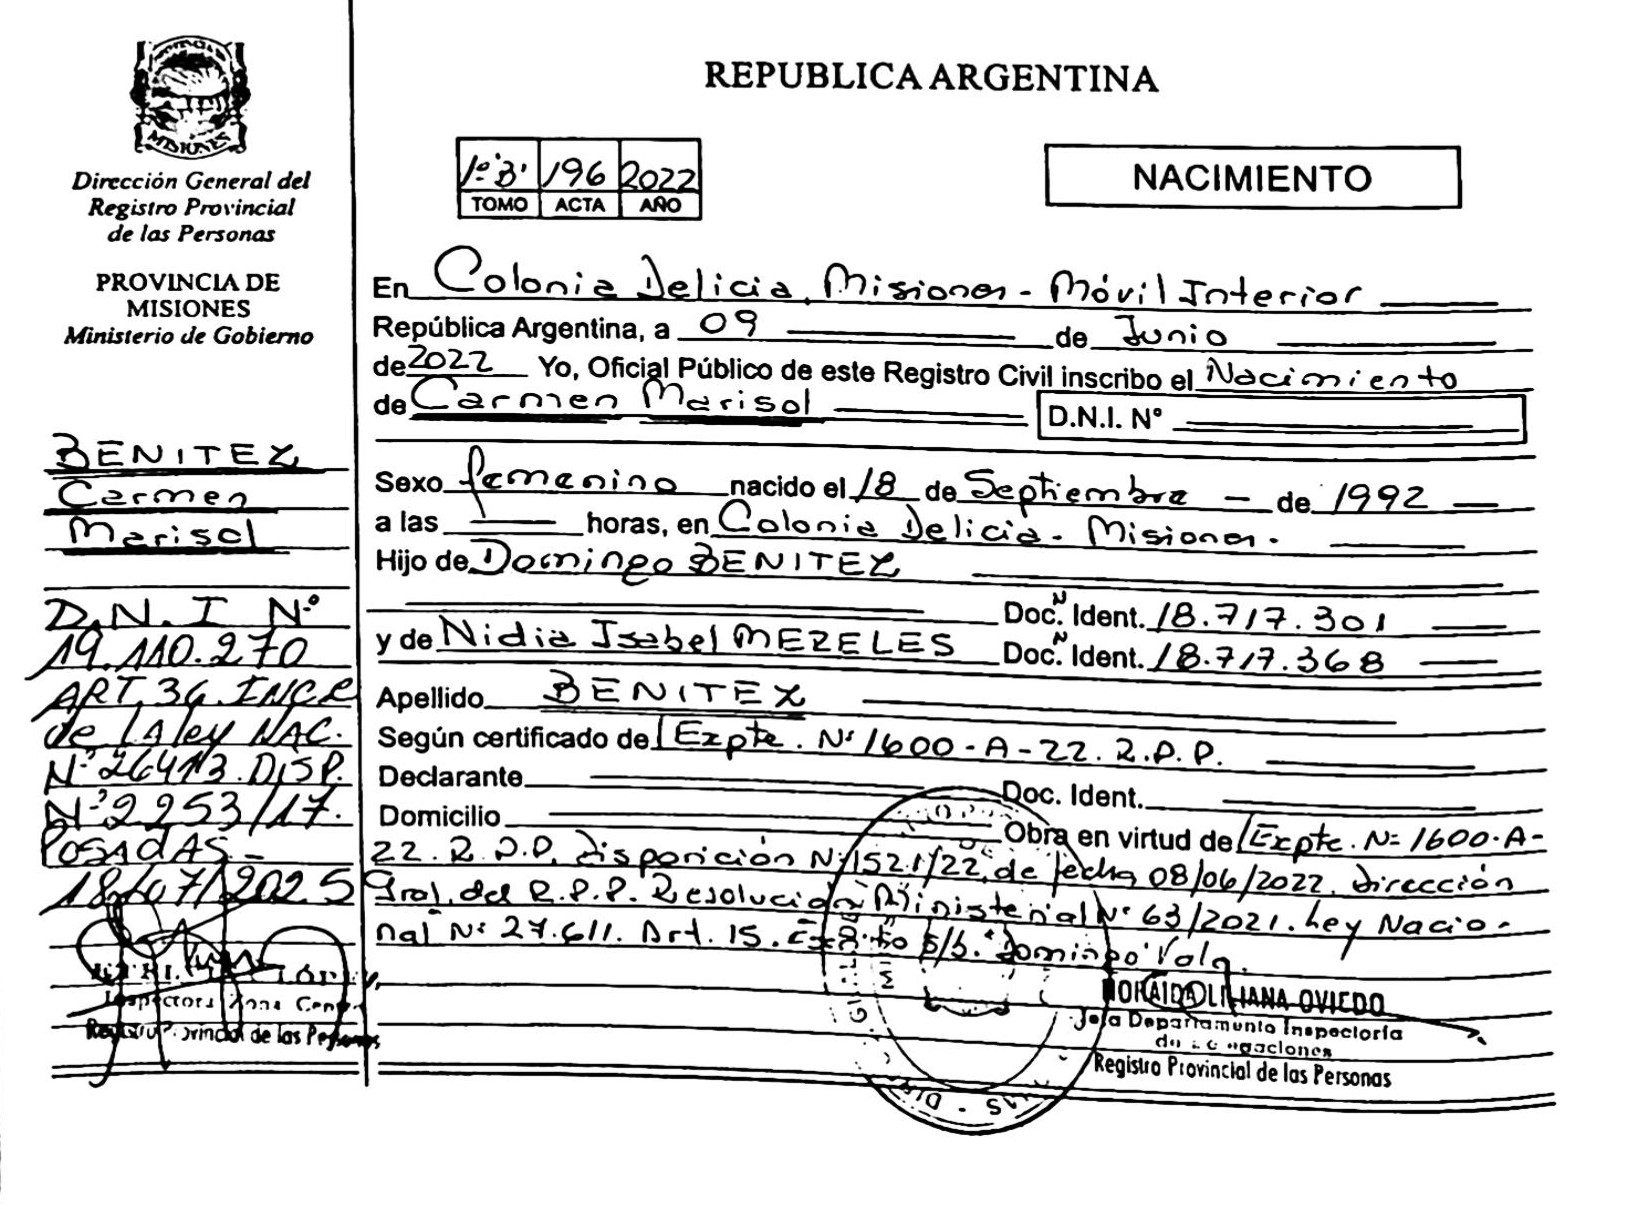 MISIONES
Dirección General del
Registro Provincial
de las Personas
PROVINCIA DE
MISIONES
Ministerio de Gobierno
BENITEZ
Carmen
Marisol
D.N.I Nº
19.110.270
ART. 36 INC C
de LA ley NAC.
Nº 26413. DISP.
Nº 2253/17.
POSADAS -
18/07/2025
Inspectora Zona Centro
Registro Provincial de las Personas
REPUBLICA ARGENTINA
1º"B" 196 2022
TOMO ACTA AÑO
NACIMIENTO
En Colonia Delicia, Misiones - Móvil Interior
República Argentina, a 09 de Junio
de 2022 Yo, Oficial Público de este Registro Civil inscribo el Nacimiento
de Carmen Marisol D.N.I. Nº
Sexo femenino nacido el 18 de Septiembre - de 1992
a las horas, en Colonia Delicia - Misiones -
Hijo de Domingo BENITEZ
Doc. N Ident. 18.717.301
y de Nidia Isabel MEZELES Doc. N Ident. 18.717.368
Apellido BENITEZ
Según certificado de Expte. Nº 1600-A-22. R.P.P.
Declarante Doc. Ident.
Domicilio Obra en virtud de Expte. Nº 1600-A-
22. R.P.P. Disposición Nº 1521/22, de fecha 08/06/2022. Dirección
Gral. del R.P.P. Resolución Ministerial Nº 63/2021. Ley Nacio-
nal Nº 27.611. Art. 15. s/b. "Domingo" Vale.
LILIANA OVIEDO
Jefa Departamento Inspectoría
Registro Provincial de las Personas